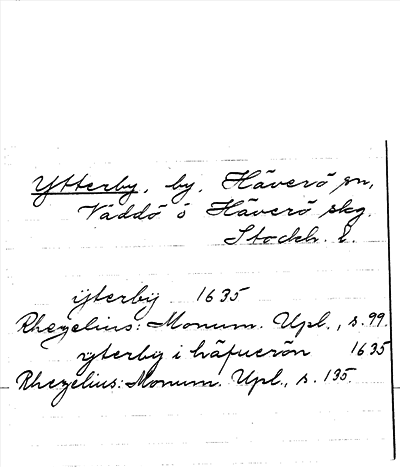 Ytterby, by, Häverö sn,
Väddö o Häverö skg.
Stockh. l.
ÿterbÿ 1635
Rhezelius: Monum. Upl., s. 99.
yterby i häfuerön 1635
Rhezelius: Monum. Upl., s. 135.